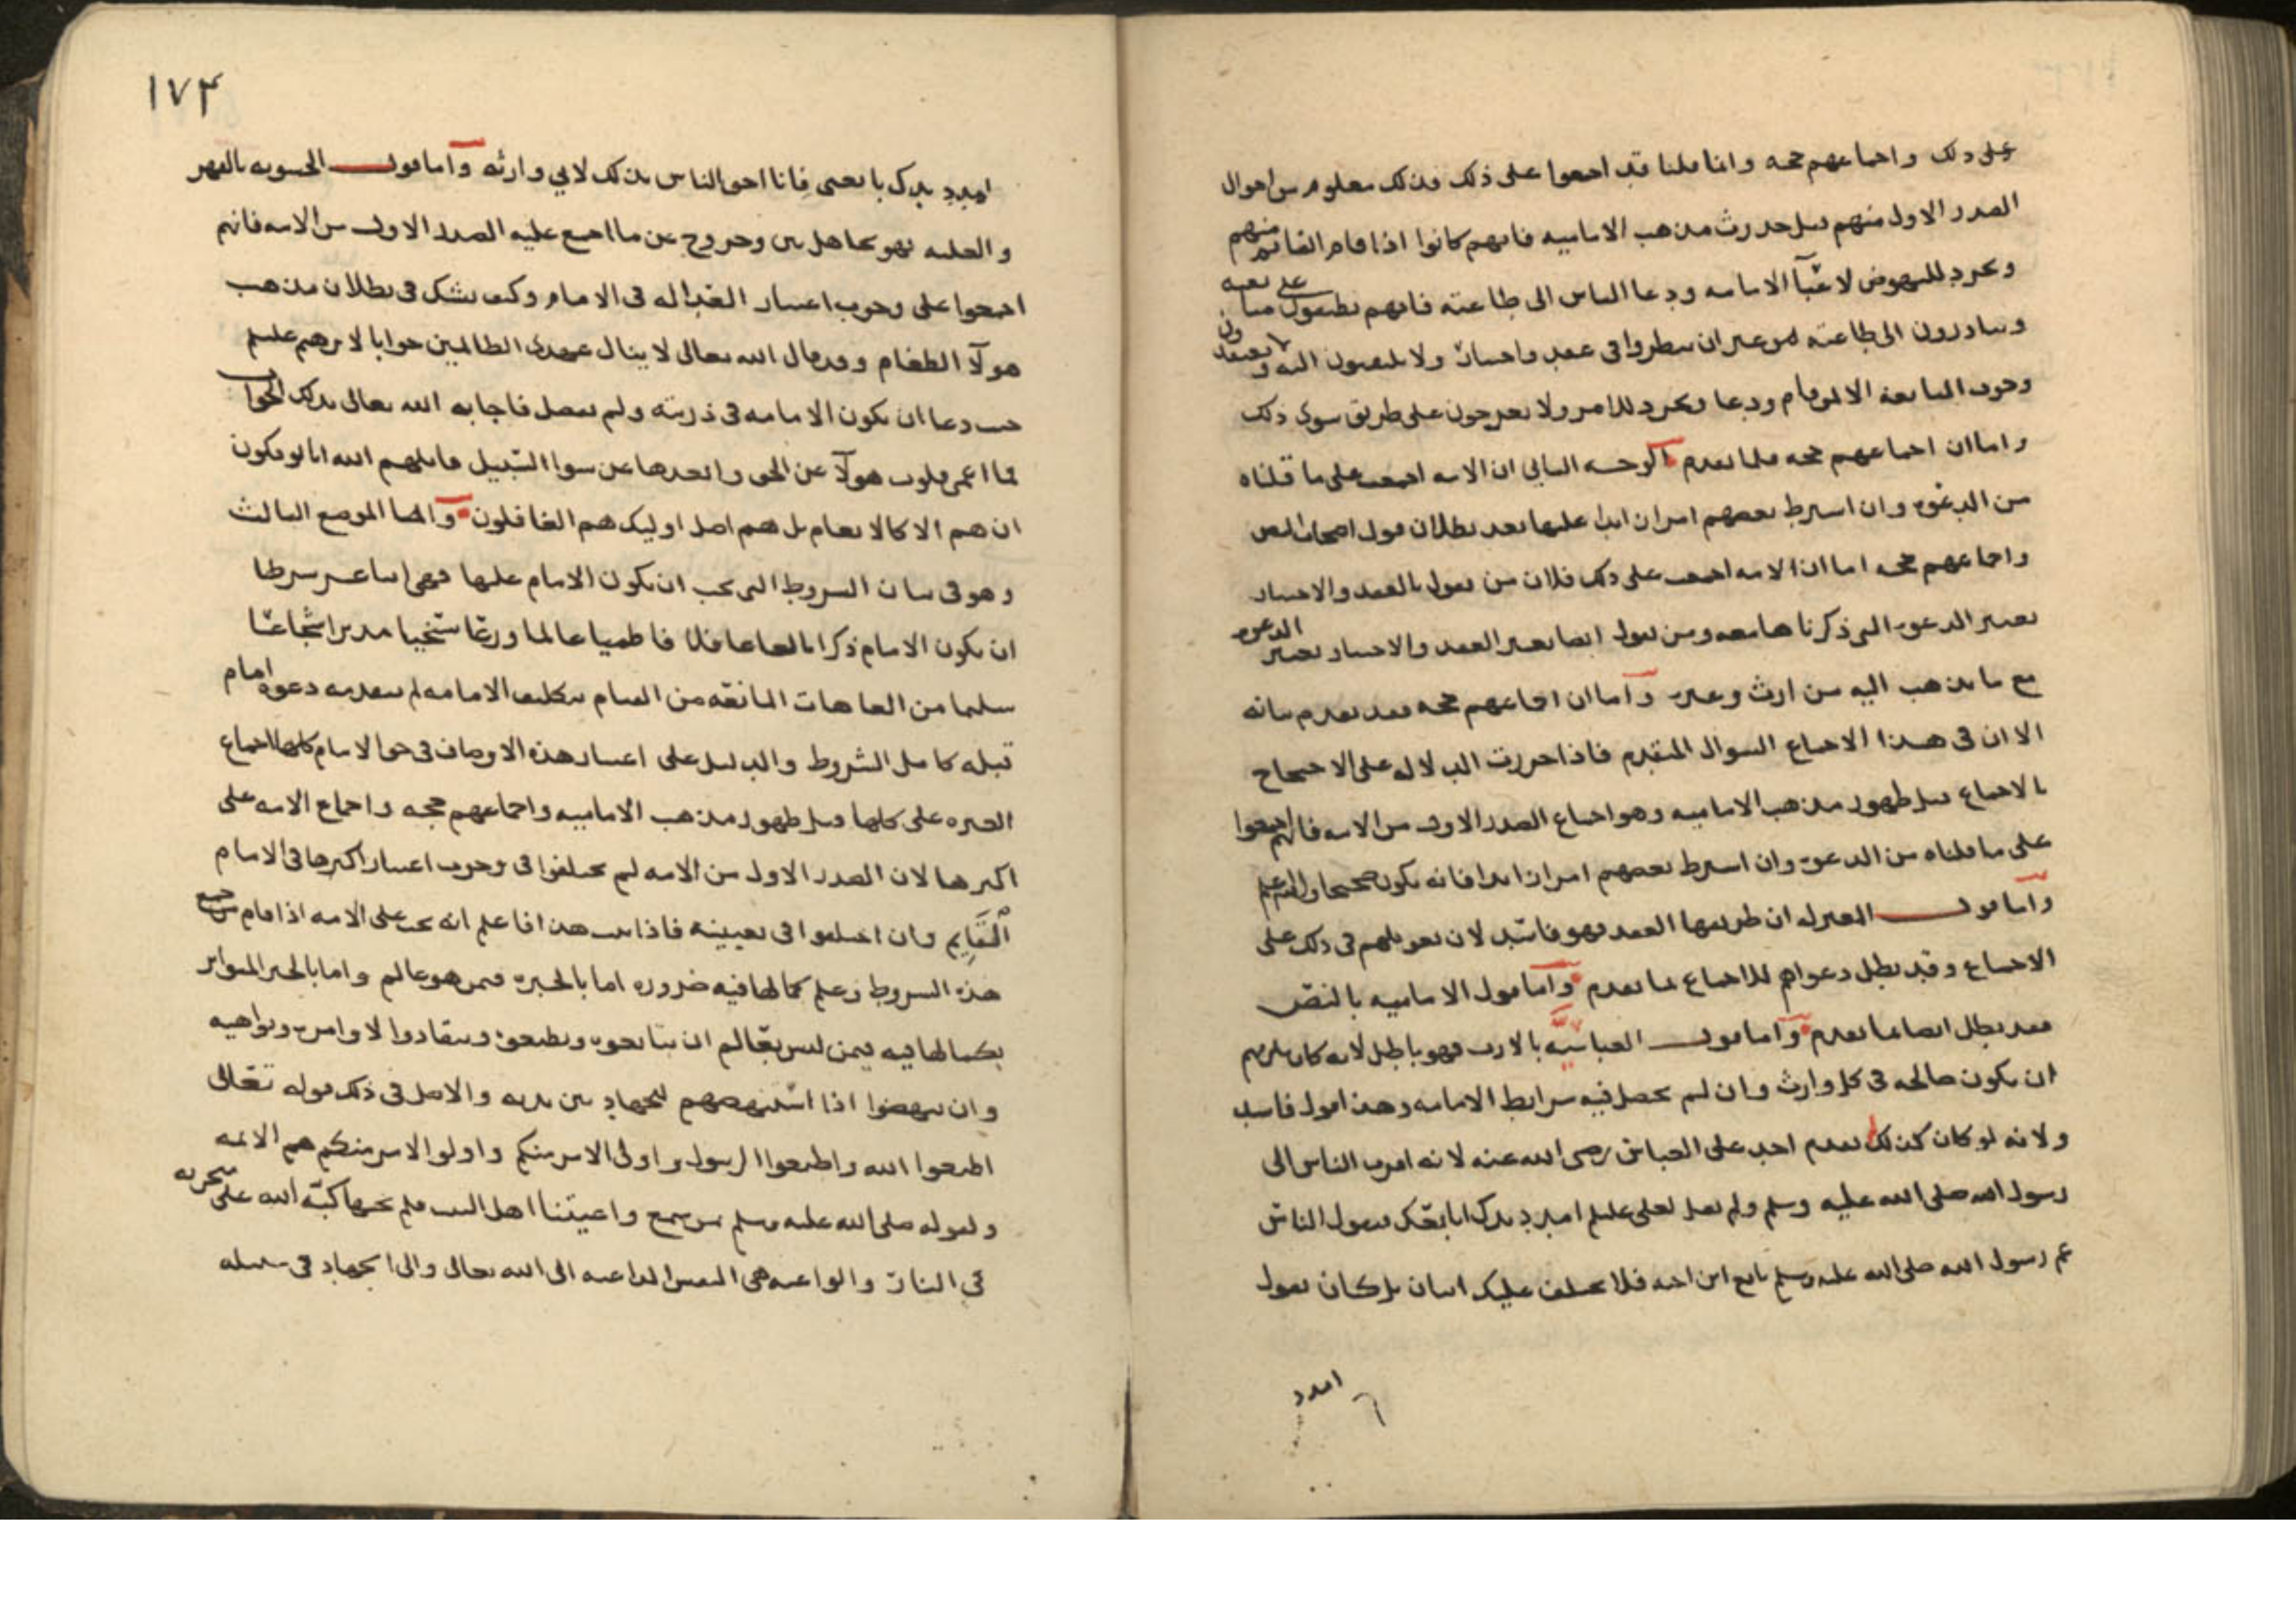 على ذلك واجماعهم حجه وانما قلنا قد اجمعوا على ذلك فذلك معلوم من احوال
الصدر الاول منهم قبل حدوث مذهب الاماميه فانهم كانوا اذا قام القائم منهم
وتجرد للنهوض لاعبآ الامامه ودعا الناس الى طاعته فانهم يطبقون على بيعته
ويبادرون الى طاعته من غير ان ينظروا في عقد واختيار ولا يلتفتون اليه و لا يعتقدون
وجوب المبايعة الا لمن قام ودعا وتجرد للامر ولا يعرجون على طريق سوى ذلك
واما ان اجماعهم حجه فلما تقدم الوجه الثاني ان الامه اجمعت على ما قلناه
من الدعوة وان اشترط بعضهم امرا زايدا عليها بعد بطلان قول اصحاب النص
واجماعهم حجه اما ان الامه اجمعت على ذلك فلان من يقول بالعقد والاختيار
يعتبر الدعوه التي ذكرنا ها معه ومن يقول ايضا بغير العقد والاختيار يعتبر الدعوه
مع ما يذهب اليه من ارث وغيره وآما ان اجماعهم حجه فقد تقدم بيانه
الا ان في هذا الاجماع السوال المتقدم فاذا حررت الدلاله على الاحتجاج
بالاجماع قبل ظهور مذهب الاماميه وهو اجماع الصدر الاول من الامه فانهم اجمعوا
على ما قلناه من الدعوه وان اشترط بعضهم امرا زايدا فانه يكون صحيحا والله اعلم
وآما قول المعتزله ان طريقها العقد فهو فاسد لان تعويلهم في ذلك على
الاجماع وقد بطل دعواهم للاجماع بما تقدم وآما قول الاماميه بالنص
فقد بطل ايضا بما تقدم وآما قول العباسيه بالارث فهو باطل لانه كان يلزمهم
ان يكون صالحه في كل وارث وان لم يحصل فيه شرايط الامامه وهذا قول فاسد
ولانه لو كان كذلك لما تقدم احد على العباس رضى الله عنه لانه اقرب الناس الى
رسول الله صلى الله عليه وسلم ولم يقل لعلى عليلم امدد يدك ابايعك فيقول الناس
عم رسول الله صلى الله عليه وسلم بايع ابن اخيه فلا يختلف عليك اثنان بل كان يقول
امدد
١٧٤
امدد يدك بايعنى فانا احق الناس بذلك لاني وارثه وآما قول الحشويه بالقهر
والغلبه فهو تجاهل بين وخروج عن ما اجمع عليه الصدر الاول من الامه فانهم
اجمعوا على وجوب اعتبار العداله في الامام وكيف يشك في بطلان مذهب
هولآ الطغام وقد قال الله تعالى لا ينال عهدى الظالمين جوابا لابرهيم عليلم
حيث دعا ان يكون الامامه في ذريته ولم يفصل فاجابه الله تعالى بذلك الجواب
فما اعمى قلوب هولآ عن الحق وابعدها عن سوا السبيل قاتلهم الله انا يوفكون
ان هم الا كالانعام بل هم اضل اوليك هم الغافلون وآما الموضع الثالث
وهو في بيان الشروط التي يجب ان يكون الامام عليها فهي اثنا عشر شرطا
ان يكون الامام ذكرا بالغا عاقلا فاطميا عالما ورعا سخيا مدبرا شجاعا
سليما من العاهات المانعه من القيام بتكليف الامامه لم يتقدمه دعوة امام
قبله كامل الشروط والدليل على اعتبار هذه الاوصاف في حق الامام كلها اجماع
العتره على كلها وقبل ظهور مذهب الاماميه واجماعهم حجه واجماع الامه على
اكثرها لان الصدر الاول من الامه لم يختلفوا في وجوب اعتبار اكثرها في الامام
القايم وان اختلفوا في تعيينه فاذا ثبت هذا فاعلم انه يجب على الامه اذا قام من جمع
هذه الشروط وعلم كمالها فيه ضروره اما بالخبره فمن هو عالم واما بالخبر المتواتر
بكمالها فيه فيمن ليس بعالم ان يتابعوه ويطيعوه وينقادوا لاوامره ونواهيه
وان ينهضوا اذا استنهضهم للجهاد بين يديه والاصل في ذلك قوله تعالى
اطيعوا الله واطيعوا الرسول واولى الامر منكم واولوا الامر منكم هم الائمه
ولقوله صلى الله عليه وسلم من سمع واعيتنا اهل البيت فلم يجبها كبه الله على منخريه
في النار والواعيه هى النفس الداعيه الى الله تعالى والى الجهاد في سبيله